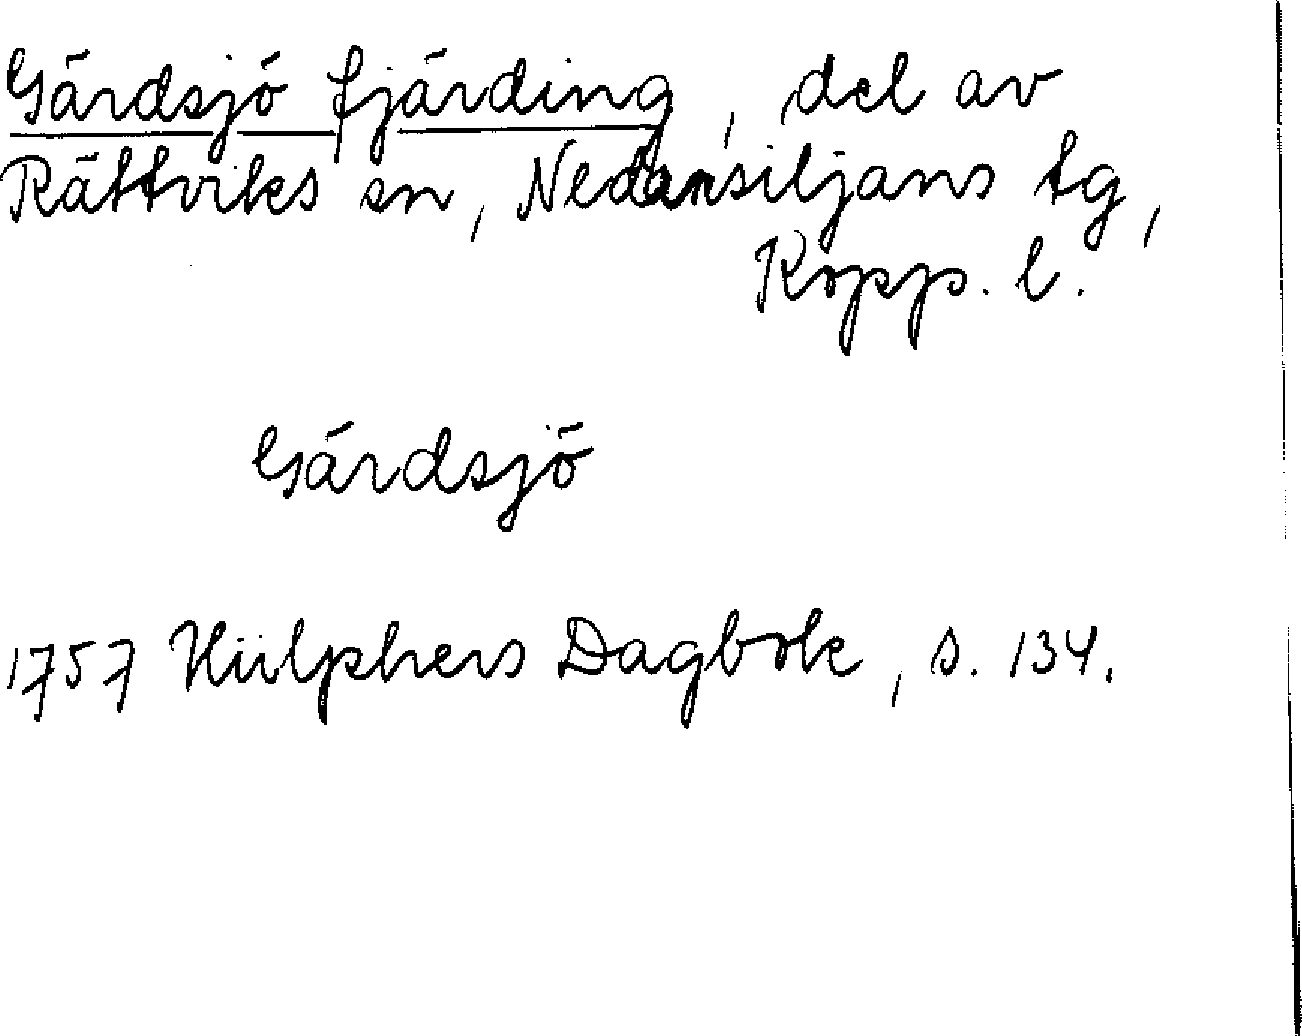 Gärdsjö fjärding, del av
Rättviks sn, Nedansiljans tg,
Kopp. l.
Gärdsjö
1757 Hülphers Dagbok, s. 134.